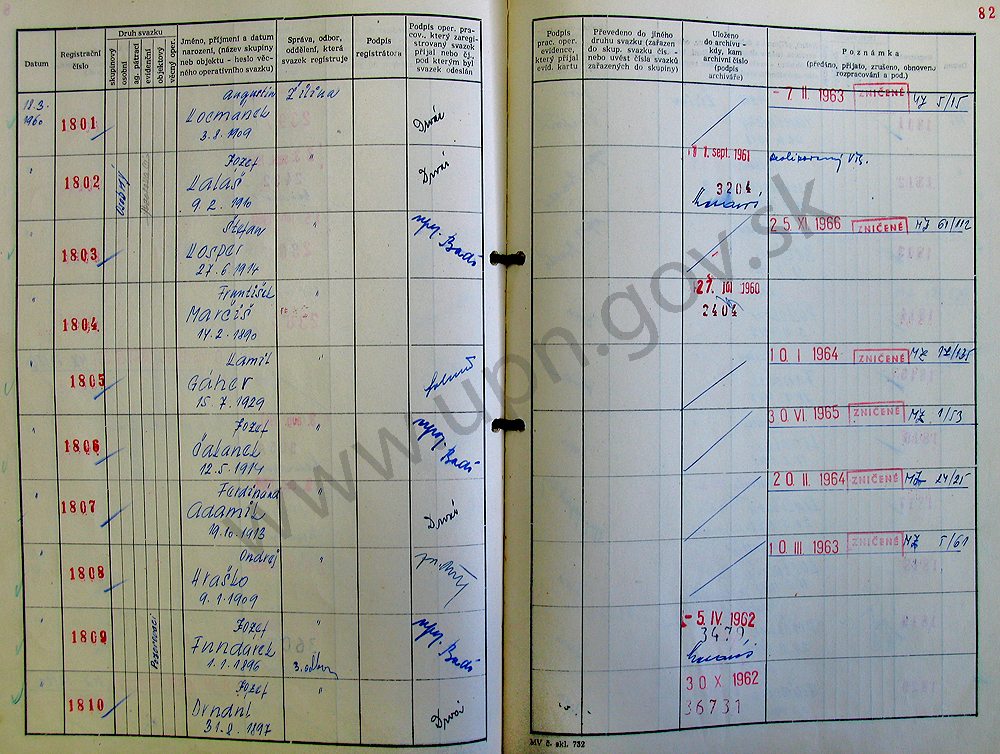 82
Datum
Registrační číslo
Druh svazku
skupinový
osobní
sg. pátrací
evidenční
objektový
věcný oper.
Jméno, příjmení a datum
narození, (název skupiny
neb objektu - heslo věc-
ného operativního svazku)
Správa, odbor,
oddělení, která
svazek registruje
Podpis
registrátora
Podpis oper. pra-
cov., který zaregi-
strovaný svazek
přijal nebo čj.
pod kterým byl
svazek odeslán
Podpis
prac. oper.
evidence,
který přijal
evid. kartu
Převedeno do jiného
druhu svazku (zařazen
do skup. svazku čís. -
nebo uvést čísla svazků
zařazených do skupiny)
Uloženo
do archivu -
kdy, kam
archivní číslo
(podpis
archiváře)
Poznámka
(předáno, přijato, zrušeno, obnoveno
rozpracování a pod.)
18.3.
1960
1801
Augustin
Kocmanek
3.8.1909
Žilina
Drváč
- 7. II. 1963 ZNIČENÉ MZ 5/15
" 1802
Jozef
Kalaš
9.2.1910
"
1. sept. 1961
3204
" 1803
Štefan
Kosper
27.6.1914
"
25. XI. 1966 ZNIČENÉ MZ 61/112
" 1804
František
Marčiš
14.2.1890
"
1960
2404
" 1805
Kamil
Gáher
15.7.1929
"
10. I 1964 ZNIČENÉ MZ 17/135
" 1806
Jozef
Čalanek
12.5.1914
"
30. VI. 1965 ZNIČENÉ MZ 1/53
" 1807
Ferdinánd
Adamík
19.10.1913
"
20. II. 1964 ZNIČENÉ MZ 24/25
" 1808
Ondrej
Hraško
9.1.1909
"
10. III 1963 ZNIČENÉ MZ 5/61
" 1809
Jozef
Fundárek
1.1.1896
"
3. odbor
- 5. IV. 1962
" 1810
Jozef
Drndnl
31.8.1897
"
30 X 1962
36731
MV č. skl. 732
www.upn.gov.sk